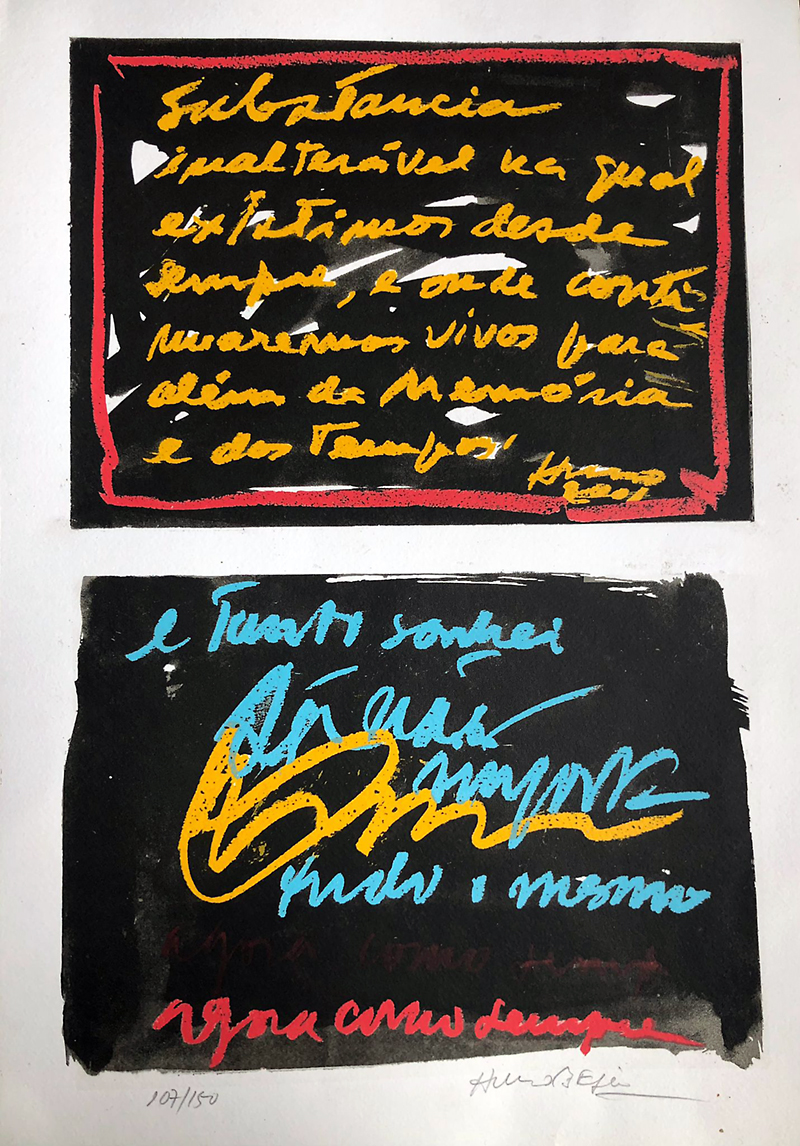 Substância
inalterável na qual
existimos desde
sempre, e onde conti
nuaremos vivos para
além da Memória
e dos Tempos
e Tanto sonhei
não
importa
tudo é mesmo
agora como
agora como sempre
107/150